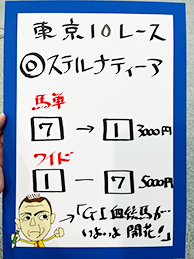 東京10レース
◎ステルナティーア
馬単
7 → 1 3000円
ワイド
1 ― 7 5000円
→「GI血統馬が…
いよいよ開花!」